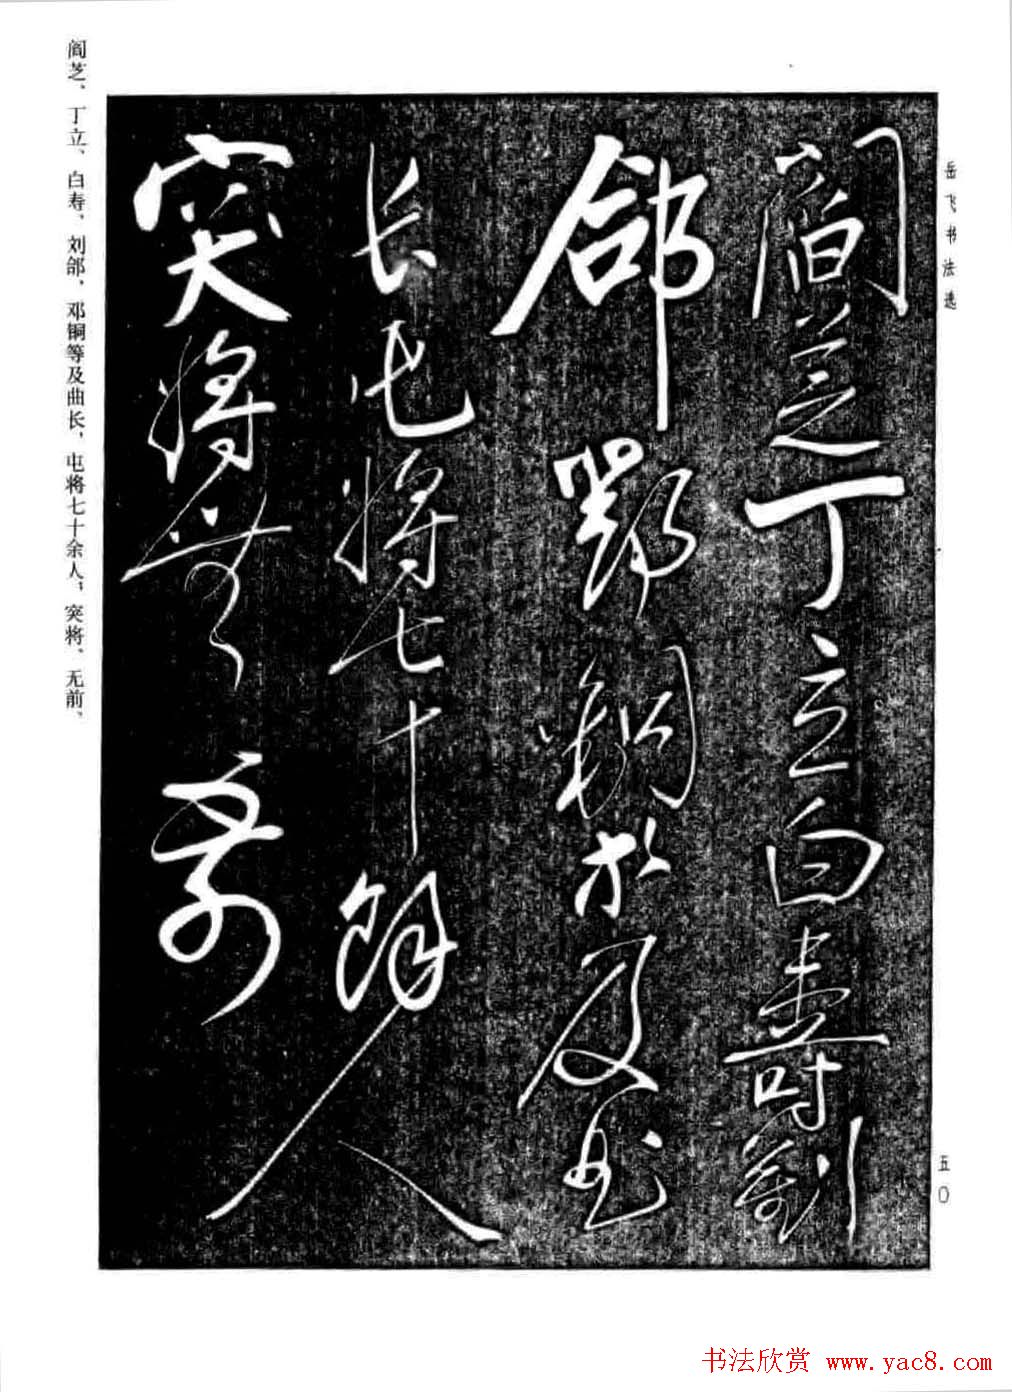 岳飞书法选
五〇
阎芝丁立白寿刘
郃鄧铜等及曲
长屯将七十馀人
突将无前
阎芝、丁立、白寿、刘郃、邓铜等及曲长，屯将七十余人，突将、无前、
书法欣赏 www.yac8.com